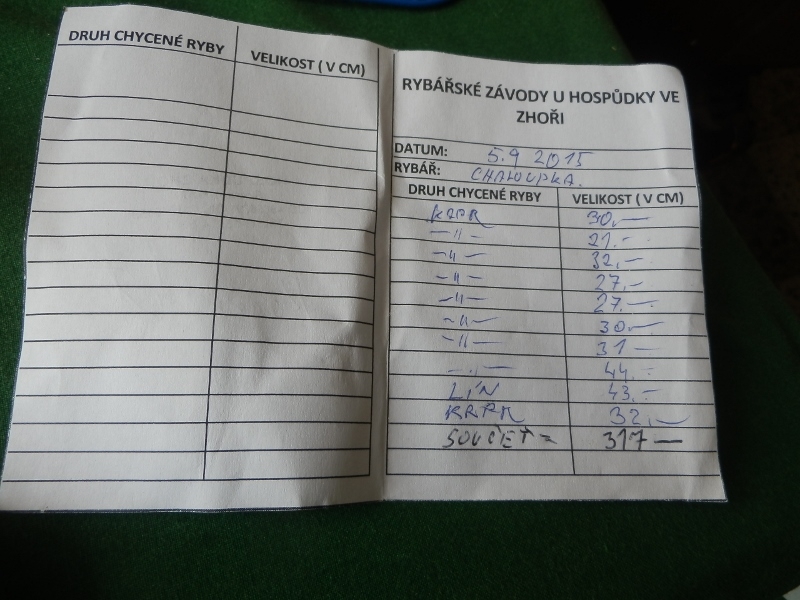 DRUH CHYCENÉ RYBY VELIKOST ( V CM)
RYBÁŘSKÉ ZÁVODY U HOSPŮDKY VE
ZHOŘI
DATUM: 5.9 2015
RYBÁŘ: CHALOUPKA.
DRUH CHYCENÉ RYBY VELIKOST ( V CM)
KAPR 30,—
—〃— 21.-
—〃— 32,-
—〃— 27.-
—〃— 27.-
—〃— 30.—
—〃— 31 —
—〃— 44.-
LÍN 43.-
KAPR 32,—
SOUČET = 317 —